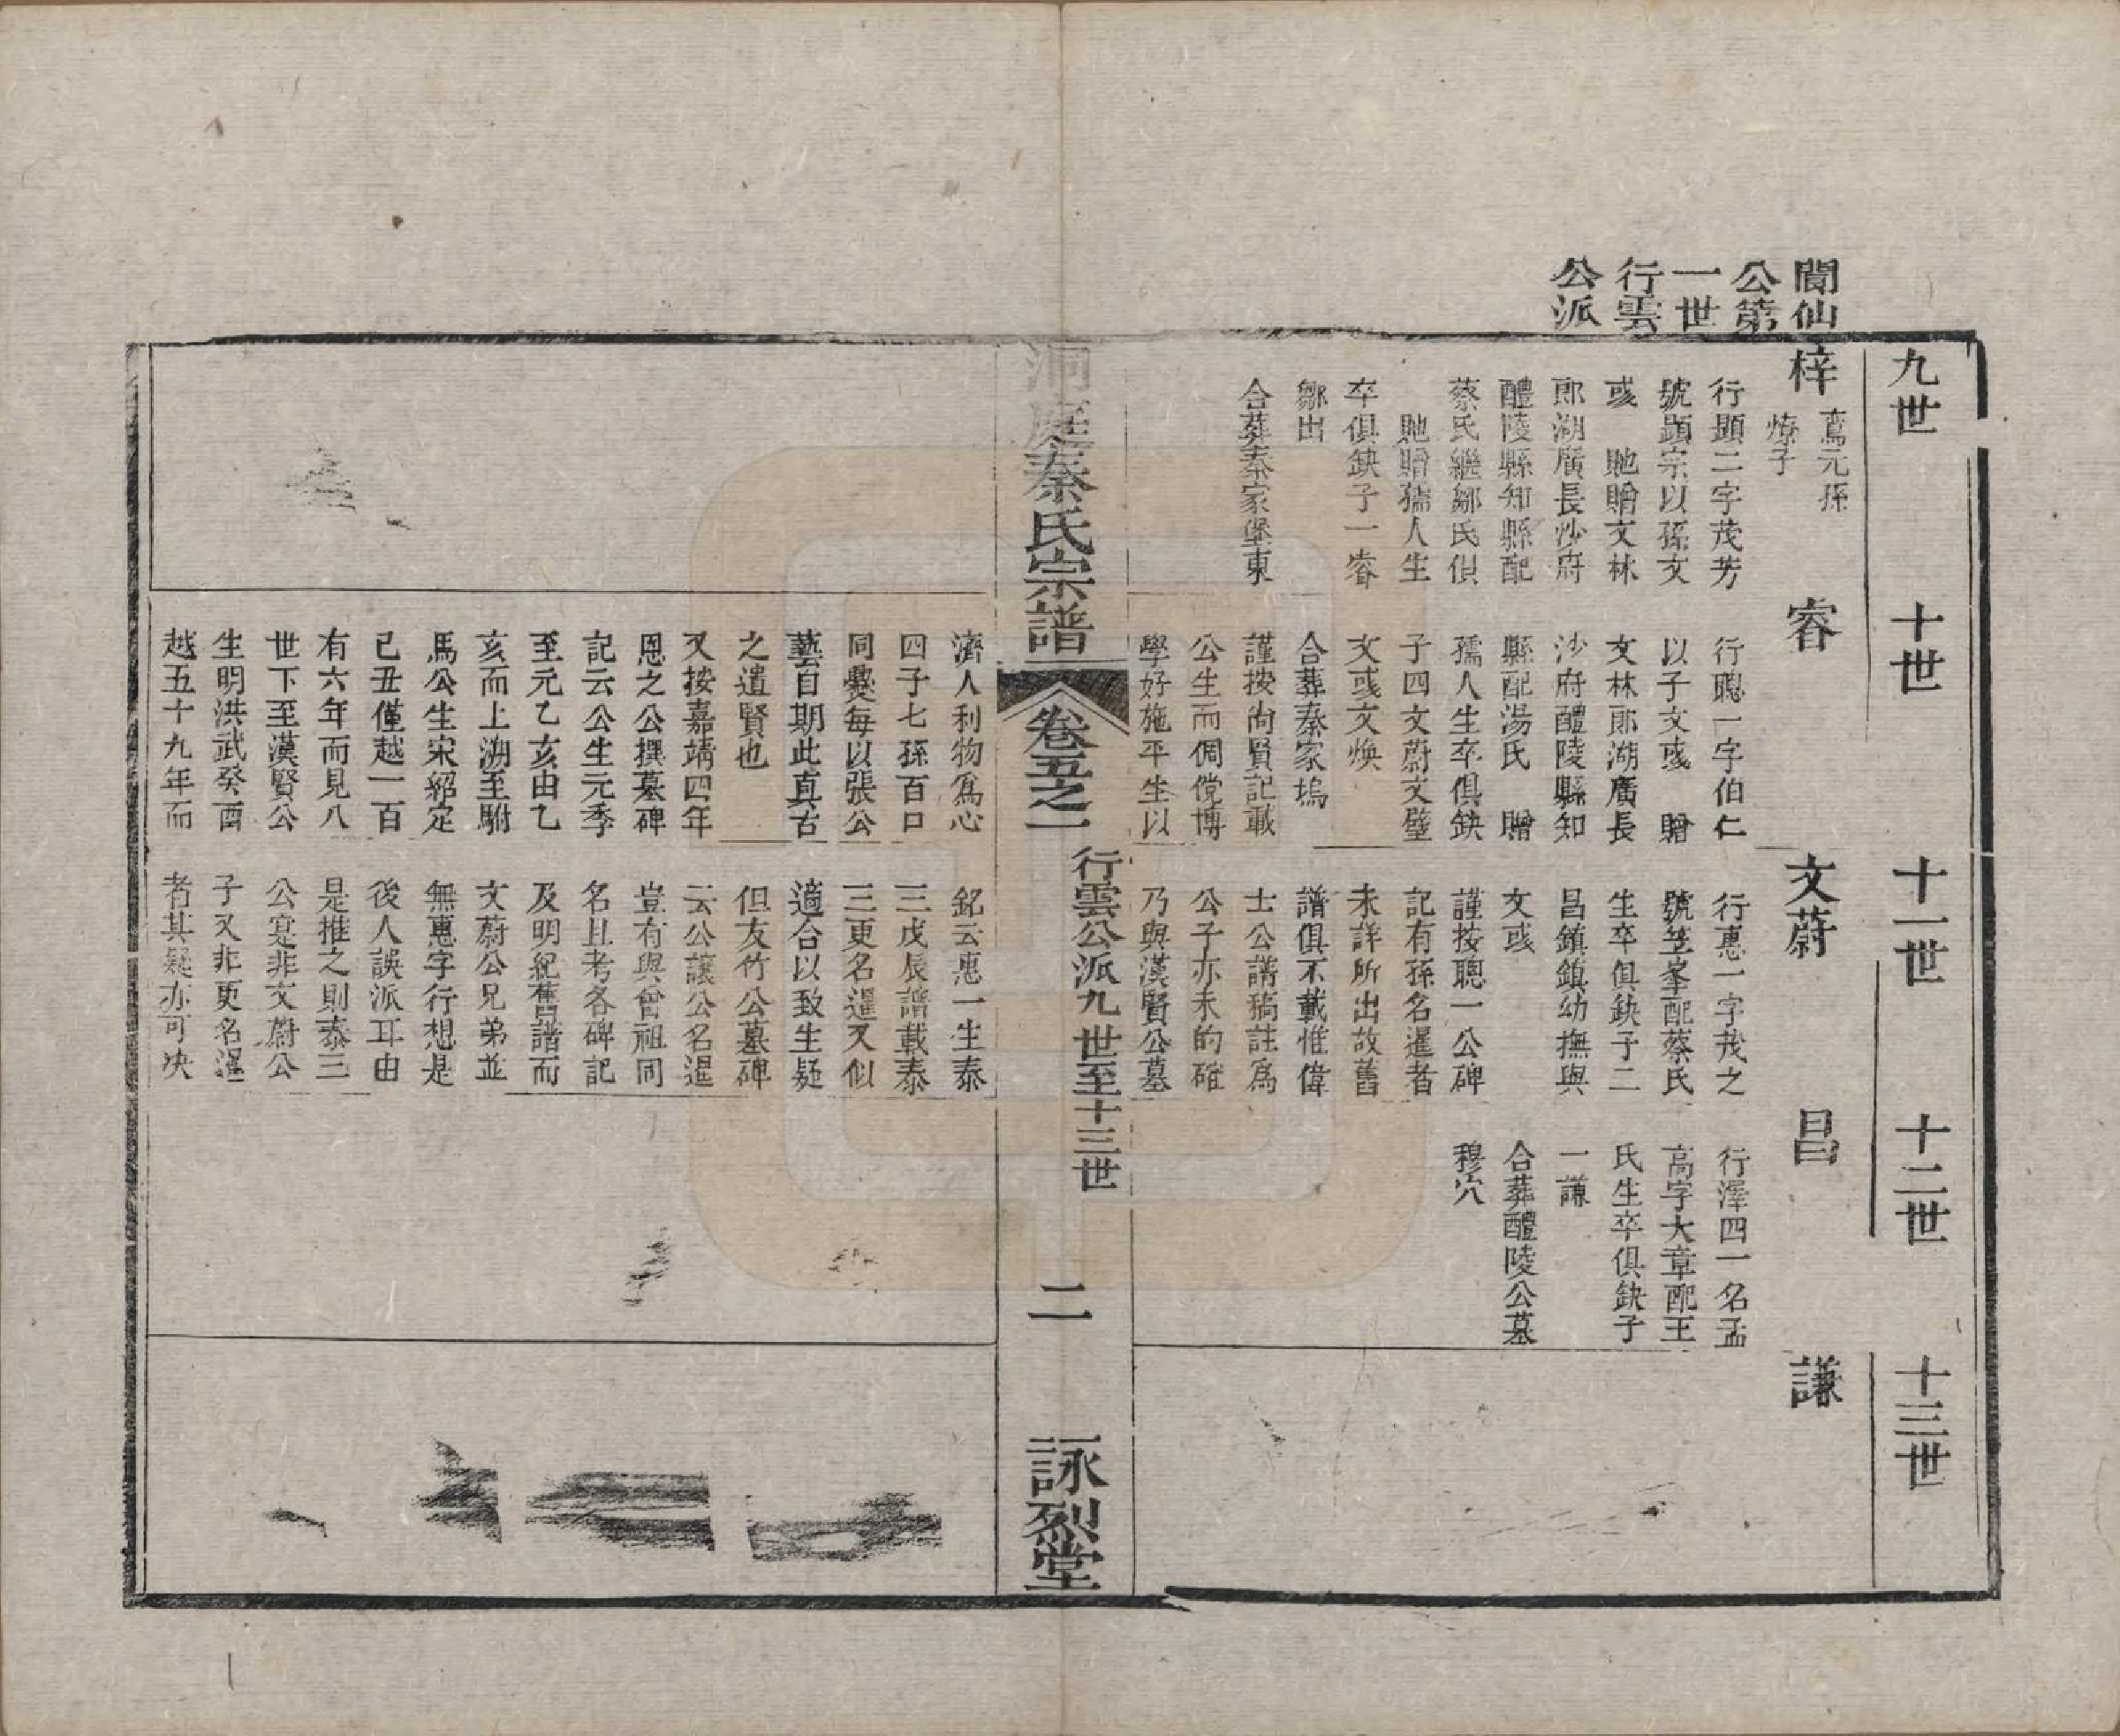 聞仙
公第
一世
行雲
公派
九世
十世
十一世
十二世
十三世
梓
鸞元孫
燎子
行顯二字茂芳
號顯宗以孫文
彧 貤贈文林
郎湖廣長沙府
醴陵縣知縣配
蔡氏繼鄒氏俱
貤贈孺人生
卒俱缺子一睿
鄒出
合葬秦家堡東
睿
行聰一字伯仁
以子文彧 贈
文林郎湖廣長
沙府醴陵縣知
縣配湯氏 贈
孺人生卒俱缺
子四文蔚文璧
文彧文煥
合葬秦家塢
謹按尚賢記載
公生而倜儻博
學好施平生以
濟人利物爲心
四子七孫百口
同爨每以張公
藝自期此真古
之遺賢也
又按嘉靖四年
恩之公撰墓碑
記云公生元季
至元乙亥由乙
亥而上溯至駙
馬公生宋紹定
己丑僅越一百
有六年而見八
世下至漢賢公
生明洪武癸酉
越五十九年而
文蔚
行惠一字茂之
號笠峯配蔡氏
生卒俱缺子二
昌鎮鎮幼撫與
文彧
謹按聰一公碑
記有孫名暹者
未詳所出故舊
譜俱不載惟偉
士公譜稿註爲
公子亦未的確
乃與漢賢公墓
銘云惠一生泰
三戊辰譜載泰
三更名暹又似
適合以致生疑
但友竹公墓碑
云公讓公名暹
豈有與曾祖同
名且考各碑記
及明紀舊譜而
文蔚公兄弟並
無惠字行想是
後人誤派耳由
是推之則泰三
公寔非文蔚公
子又非更名暹
者其疑亦可決
昌
行澤四一名孟
高字大章配王
氏生卒俱缺子
一謙
合葬醴陵公墓
穆穴
謙
洞庭秦氏宗譜
卷五之一
行雲公派九世至十三世
二
詠烈堂